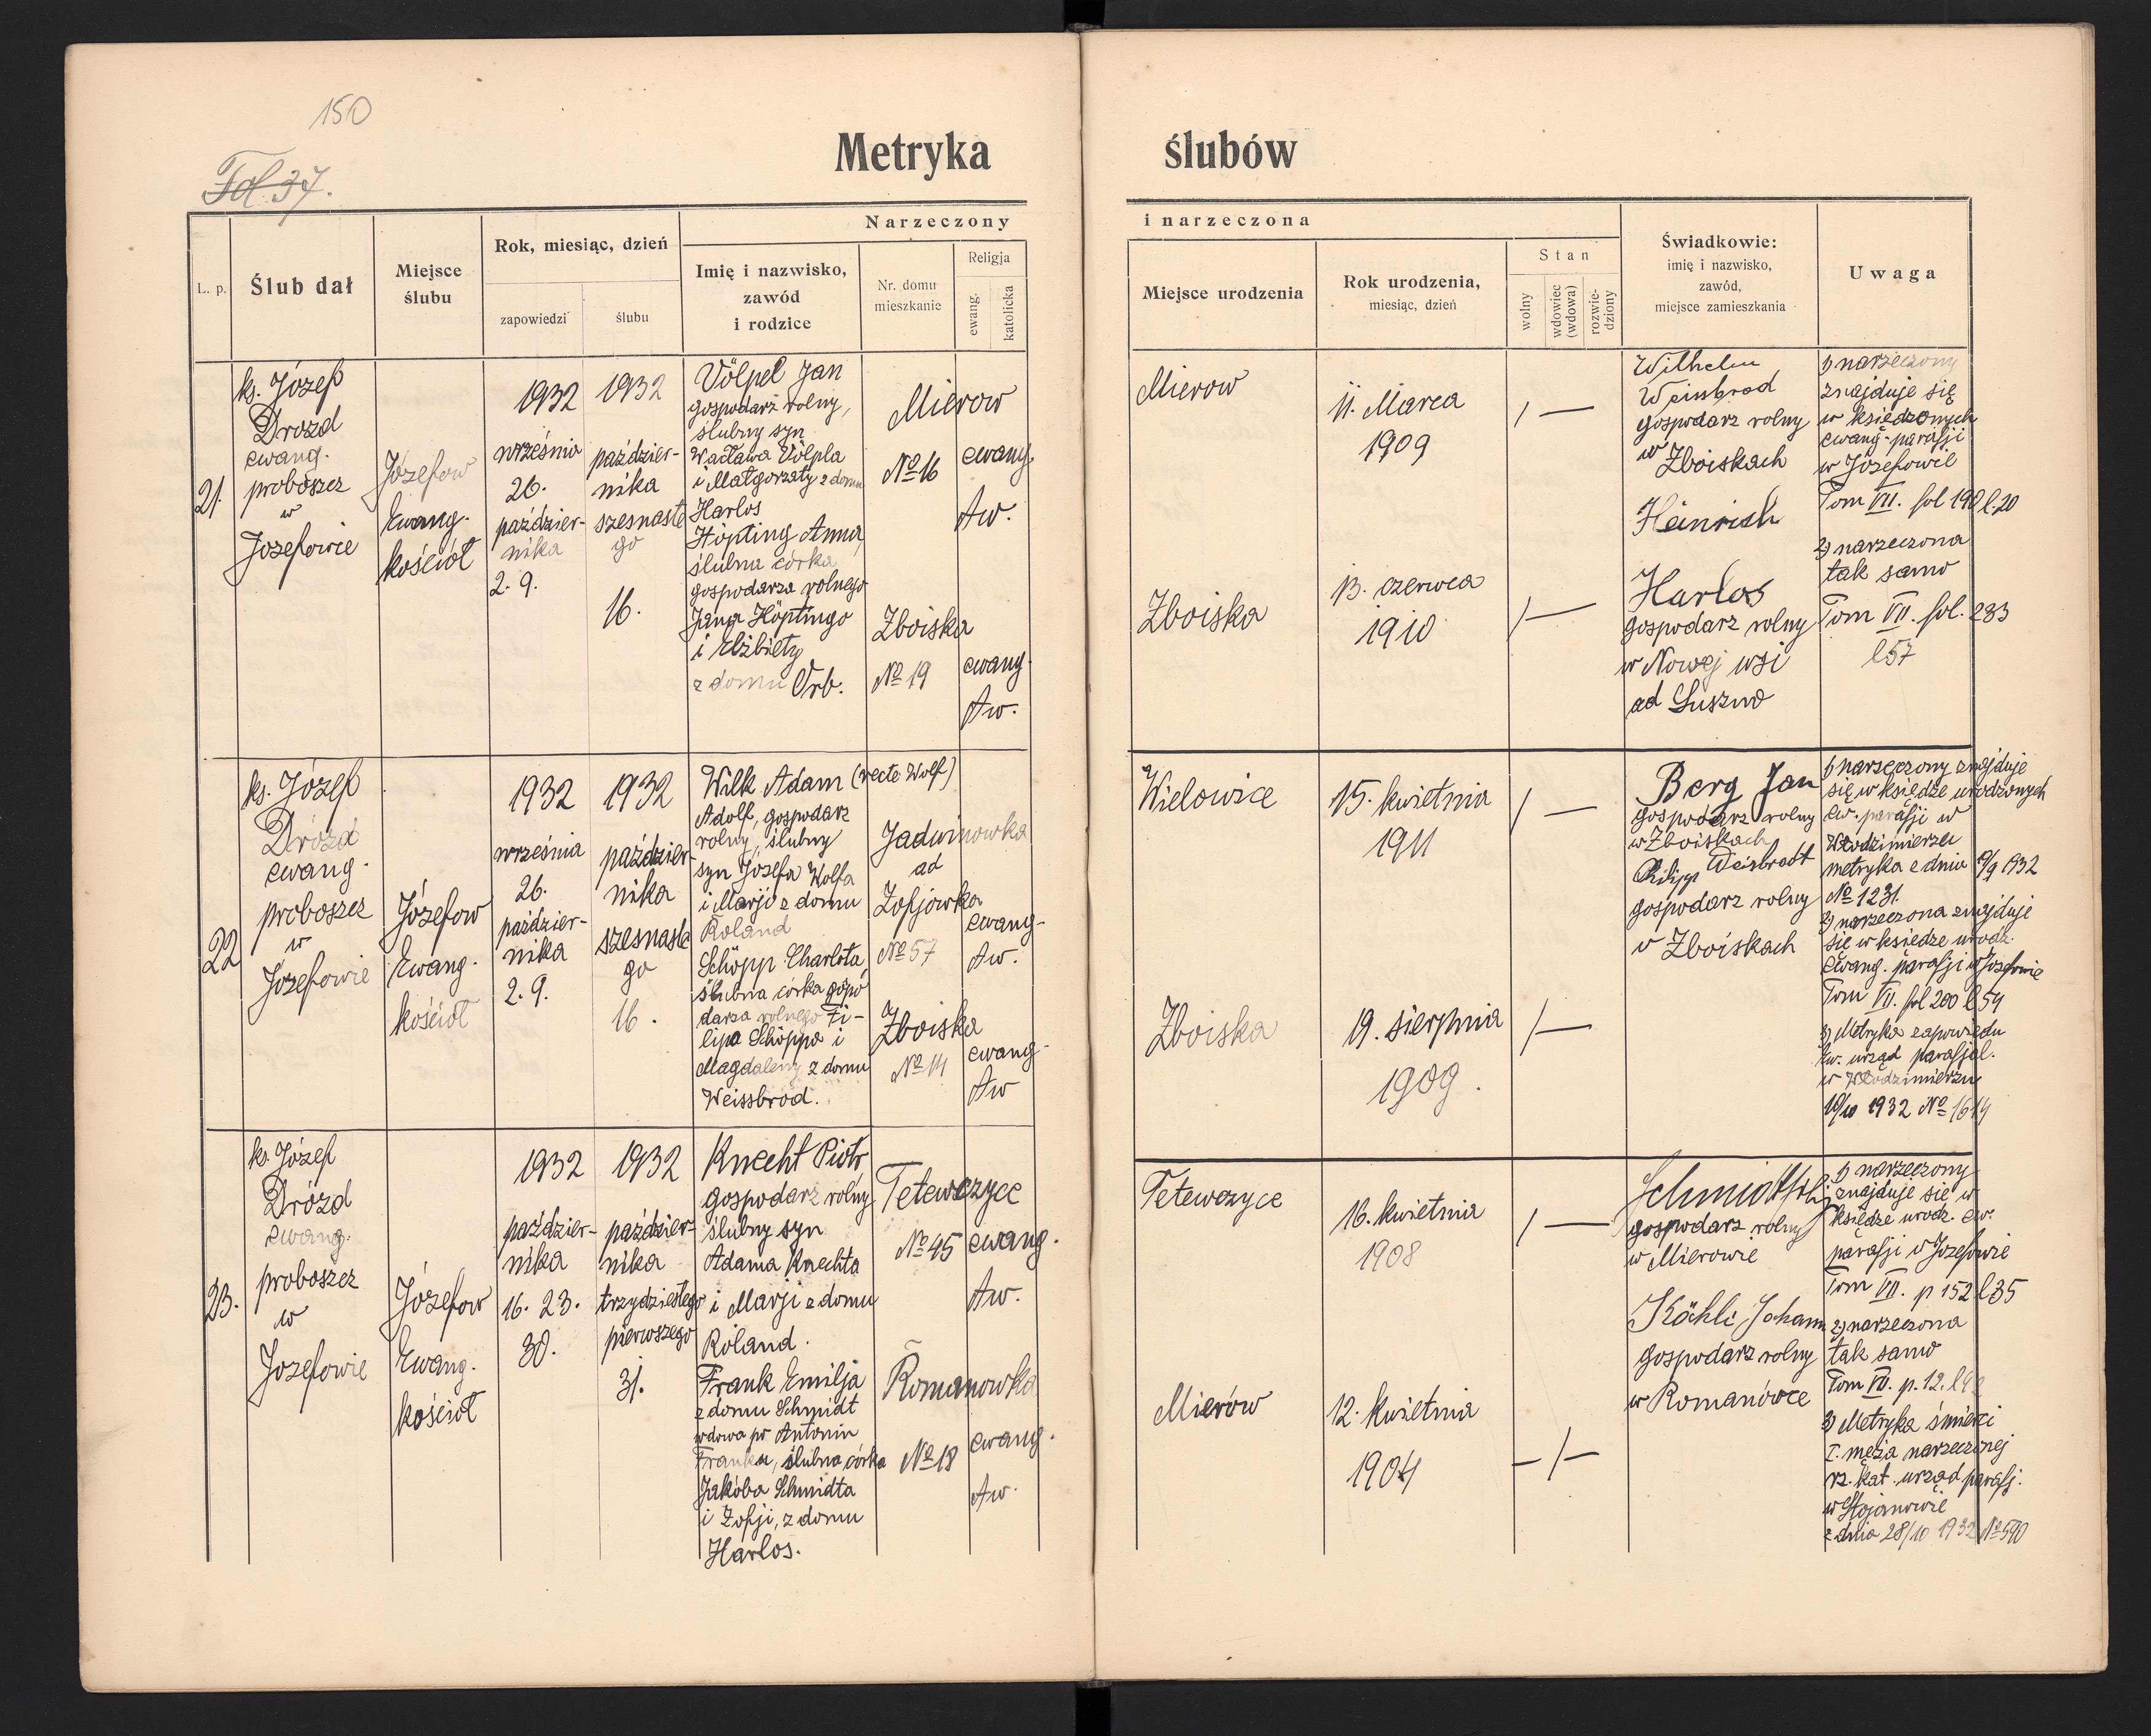 150
Fol 37.
Metryka ślubów
L. p.
Ślub dał
Miejsce
ślubu
Rok, miesiąc, dzień
zapowiedzi
ślubu
Narzeczony
Imię i nazwisko,
zawód
i rodzice
Nr. domu
mieszkanie
Religja
ewang.
katolicka
i narzeczona
Miejsce urodzenia
Rok urodzenia,
miesiąc, dzień
Stan
wolny
wdowiec
(wdowa)
rozwie-
dziony
Świadkowie:
imię i nazwisko,
zawód,
miejsce zamieszkania
Uwaga
21.
ks. Józef
Drozd
ewang.
proboszcz
w
Józefowie
Józefow
Ewang.
kościół
1932
września
26.
paździer-
nika
2. 9.
1932
paździer-
nika
szesnaste
go
16.
Völpel Jan
gospodarz rolny,
ślubny syn
Wacława Völpla
i Małgorzaty z domu
Harlos
Höpting Anna,
ślubna córka
gospodarza rolnego
Jana Höptingo
i Elżbiety
z domu Orb.
Mierow
No 16
Zboiska
No 19
ewang.
Aw.
ewang.
Aw.
Mierow
Zboiska
11. Marca
1909
13. czerwca
1910
/ —
/ —
Wilhelm
Weissbrod
gospodarz rolny
w Zboiskach
Heinrich
Harlos
gospodarz rolny
w Nowej wsi
ad Suszno
1) narzeczony
znajduje się
w księdzonych
ewang. parafji
w Józefowie
Tom VII. fol 190 l. 20
2) narzeczona
tak samo
Tom VII. fol. 233
l 57
22
ks. Józef
Drózd
ewang.
proboszcz
w
Józefowie
Józefow
Ewang.
kościół
1932
września
26.
paździer-
nika
2. 9.
1932
paździer-
nika
szesnaste
go
16.
Wilk Adam (recte Wolf)
Adolf, gospodarz
rolny, ślubny
syn Józefa Wolfa
i Marji z domu
Roland
Schöpp Charlota,
ślubna córka gospo
darza rolnego Fi-
lipa Schöppa i
Magdaleny z domu
Weissbrod.
Jadwinowka
ad
Zofjówka
No 57
Zboiska
No 14
ewang.
Aw.
ewang.
Aw
Wielowice
Zboiska
15. kwietnia
1911
19. sierpnia
1909.
/ —
/ —
Berg Jan
gospodarz rolny
w Zboiskach
Philipp Weisbrodt
gospodarz rolny
w Zboiskach
1) narzeczony znajduje
się w księdze urodzonych
ew. parafji w
Włodzimierzu
metryka z dnia 19/9 1932
No 1231.
2) narzeczona znajduje
się w księdze urodz.
ewang. parafji w Józefowie
Tom VII. fol 200 l 54
3) Metryka zapowiedu
Ew. urząd parafjal.
w Włodzimierzu
10/10 1932 No 1614
23.
ks. Józef
Drózd
ewang.
proboszcz
w
Józefowie
Józefow
Ewang.
kościół
1932
paździer-
nika
16. 23.
30.
1932
paździer-
nika
trzydziestego
pierwszego
31.
Knecht Piotr,
gospodarz rolny
ślubny syn
Adama Knechta
i Marji z domu
Roland.
Frank Emilja
z domu Schmidt
wdowa po Antonin
Franku, ślubna córka
Jakóba Schmidta
i Zofji, z domu
Harlos.
Tetewczyce
No 45
Romanowka
No 18
ewang.
Aw.
ewang.
Aw.
Tetewczyce
Mierów
16. kwietnia
1908
12. kwietnia
1904
/ —
— / —
Schmidt
gospodarz rolny
w Mierowie
Köhli Johann
gospodarz rolny
w Romanówce
1) narzeczony
znajduje się w
księdze urodz. ew.
parafji w Józefowie
Tom VII. p 152 l 35
2) narzeczona
tak samo
Tom VII. p. 12.
3) Metryka śmierci
I. męża narzeczonej
rz. kat. urząd parafj.
w Stojanowie
z dnia 28/10 1932 No 590